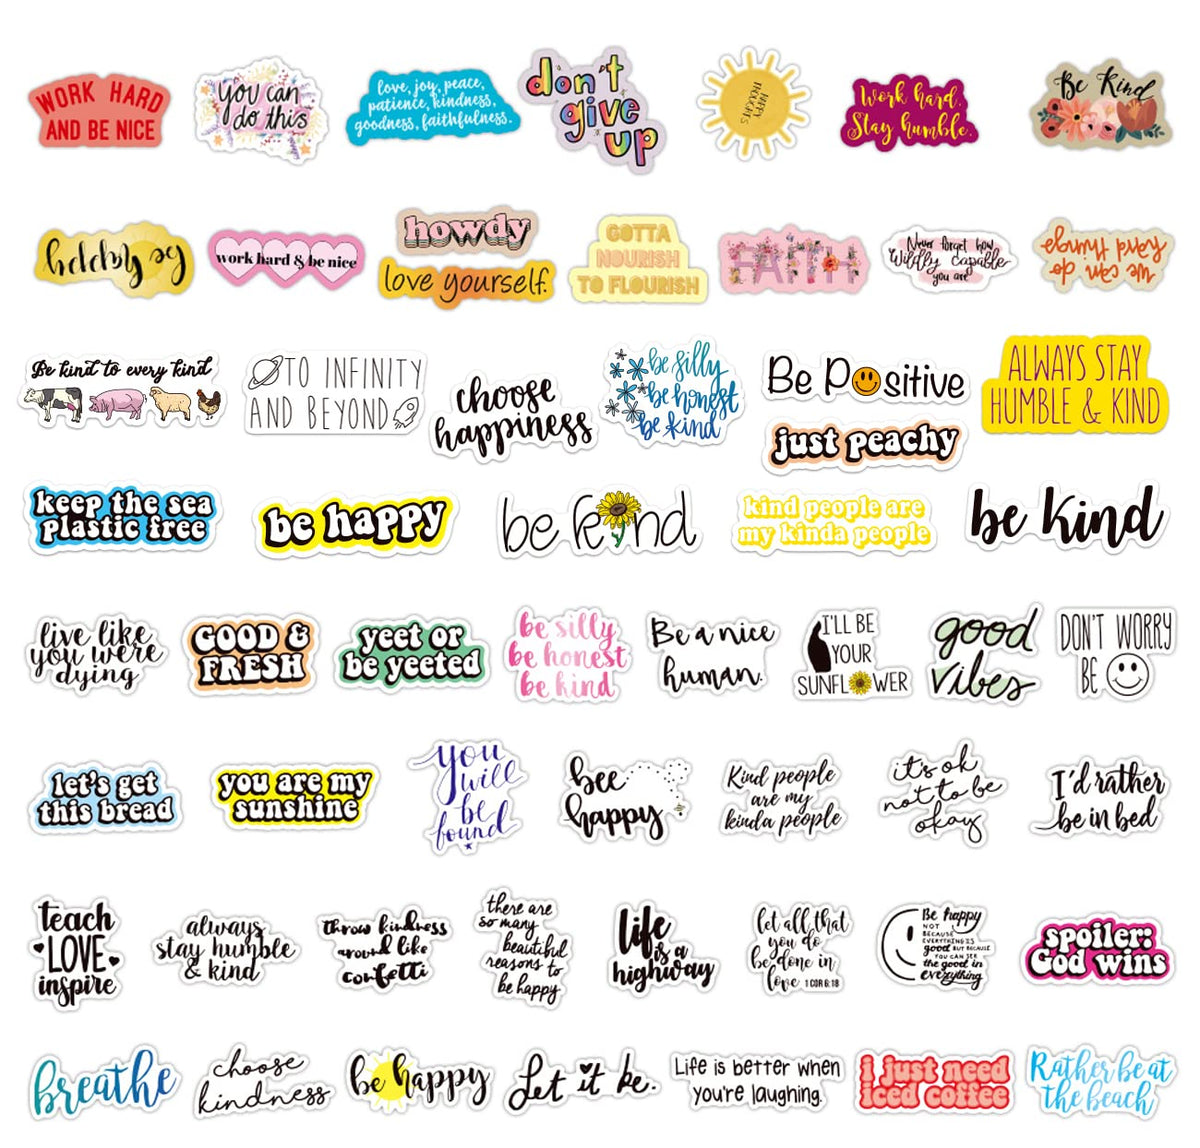 WORK HARD
AND BE NICE
you can
do this
love, joy, peace,
patience, kindness,
goodness, faithfulness.
don't
give
up
HAPPY
THOUGHTS
Work hard.
Stay humble.
Be Kind
be happy
work hard & be nice
howdy
love yourself.
GOTTA
NOURISH
TO FLOURISH
FAITH
Never forget how
Wildly capable
you are
we can do
hard things
Be kind to every kind
TO INFINITY
AND BEYOND
choose
happiness
be silly
be honest
be kind
Be Positive
just peachy
ALWAYS STAY
HUMBLE & KIND
keep the sea
plastic free
be happy
be kind
kind people are
my kinda people
be kind
live like
you were
dying
GOOD &
FRESH
yeet or
be yeeted
be silly
be honest
be kind
Be a nice
human.
I'LL BE
YOUR
SUNFLOWER
good
vibes
DON'T WORRY
BE
let's get
this bread
you are my
sunshine
you
will
be
found
bee
happy
Kind people
are my
kinda people
it's ok
not to be
okay
I'd rather
be in bed
teach
LOVE
inspire
always
stay humble
& kind
throw kindness
around like
confetti
there are
so many
beautiful
reasons to
be happy
life
is a
highway
let all that
you do
be done in
love 1 COR 16:18
Be happy
NOT
BECAUSE
EVERYTHING IS
good BUT BECAUSE
YOU CAN SEE
the good in
everything
spoiler:
God wins
breathe
choose
kindness
be happy
Let it be.
Life is better when
you're laughing.
i just need
iced coffee
Rather be at
the beach